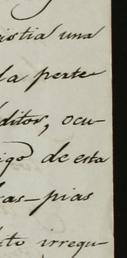 istia una
la perte
ditor, ocu-
igo de esta
as-pias
to irregu-